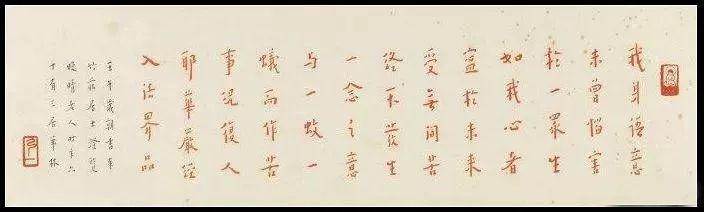 我身語意
未曾惱害
於一眾生
如我心者
寧於未來
受無間苦
終不發生
一念之意
与一蚊一
蟻而作苦
事況復人
耶華嚴經
入法界品
壬午歲朝書奉
居士澄覽
晚晴老人時年六
十有三居